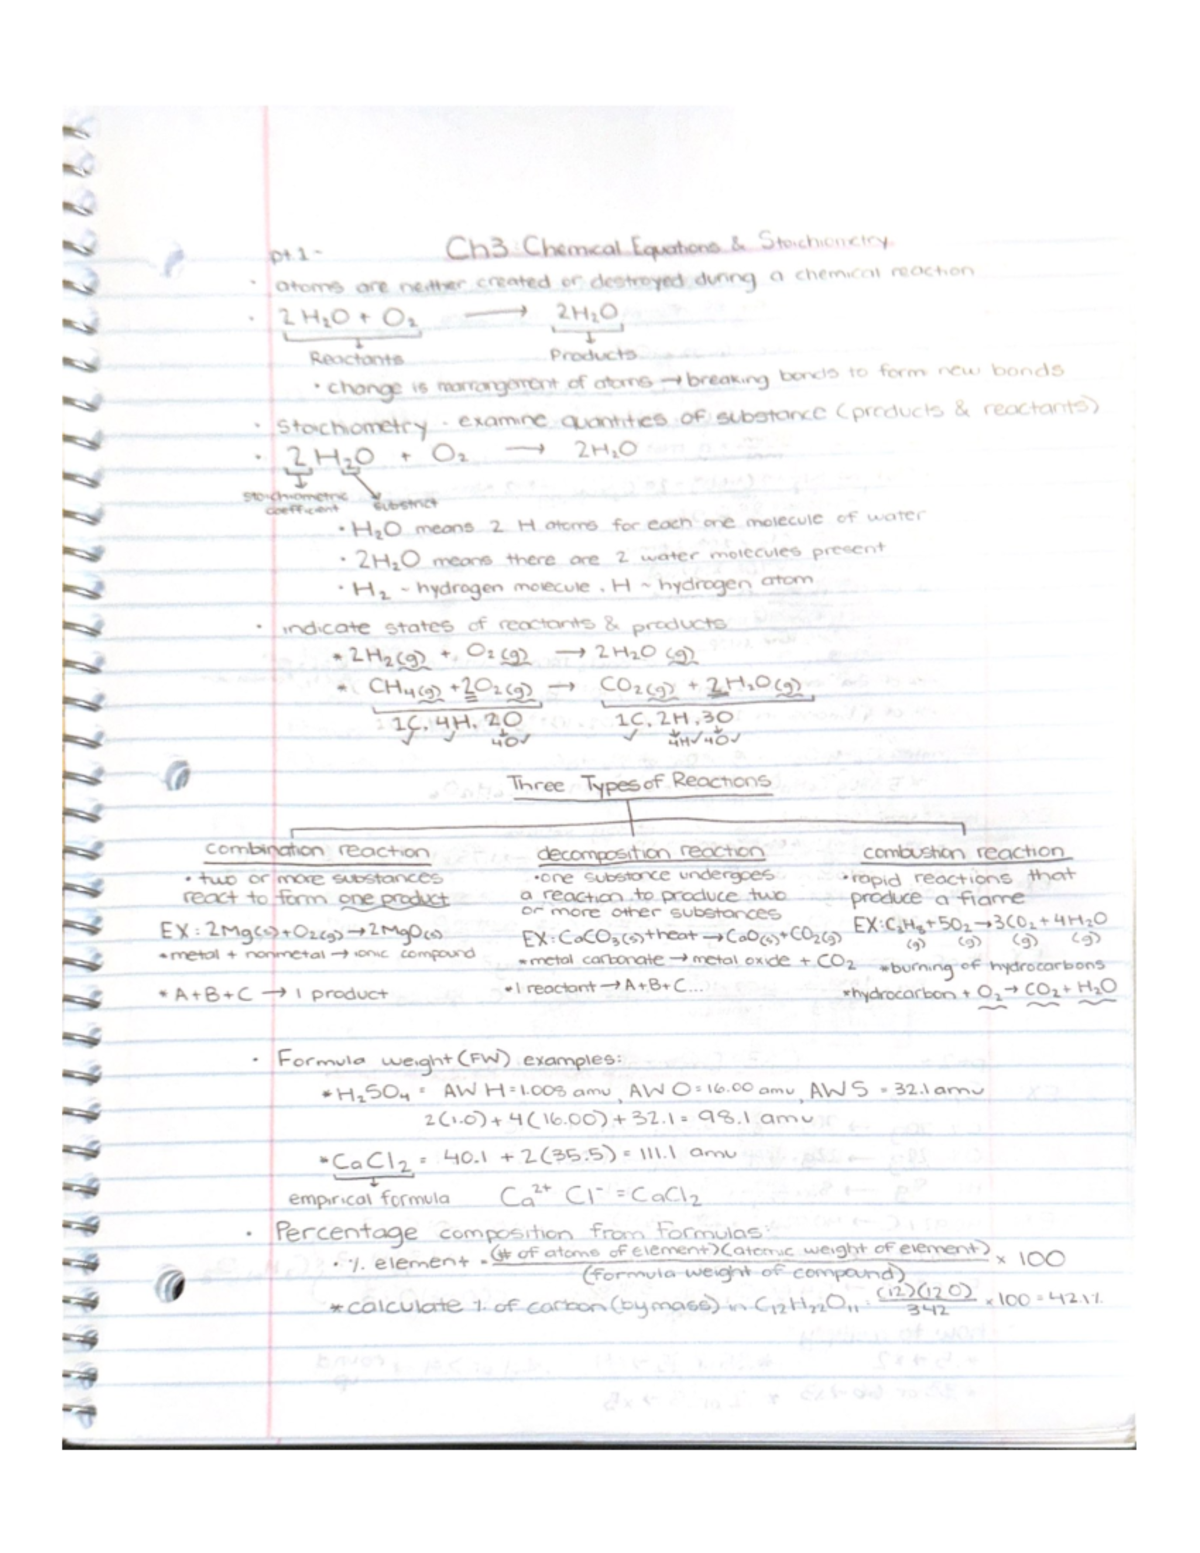 pt.1-
Ch3: Chemical Equations & Stoichiometry
· atoms are neither created or destroyed during a chemical reaction
· 2H₂O + O₂ → 2H₂O
Reactants Products
· change is rearrangement of atoms → breaking bonds to form new bonds
· Stoichiometry - examine quantities of substance (products & reactants)
· 2H₂O + O₂ → 2H₂O
stoichiometric coefficient
substrict
· H₂O means 2 H atoms for each one molecule of water
· 2H₂O means there are 2 water molecules present
· H₂ - hydrogen molecule, H - hydrogen atom
· indicate states of reactants & products
* 2H₂(g) + O₂(g) → 2H₂O(g)
* CH₄(g) + 2O₂(g) → CO₂(g) + 2H₂O(g)
1C, 4H, 2O 1C, 2H, 3O
✓ ✓ 4O✓ ✓ 4H✓ 4O✓
Three Types of Reactions
combination reaction
· two or more substances
react to form one product
EX: 2Mg(s) + O₂(g) → 2MgO(s)
* metal + nonmetal → ionic compound
* A+B+C → 1 product
decomposition reaction
· one substance undergoes
a reaction to produce two
or more other substances
EX: CaCO₃(s) + heat → CaO(s) + CO₂(g)
* metal carbonate → metal oxide + CO₂
* 1 reactant → A+B+C...
combustion reaction
· rapid reactions that
produce a flame
EX: C₃H₈ + 5O₂ → 3CO₂ + 4H₂O
(g) (g) (g) (g)
* burning of hydrocarbons
* hydrocarbon + O₂ → CO₂ + H₂O
· Formula weight (FW) examples:
* H₂SO₄ = AW H = 1.008 amu, AW O = 16.00 amu, AW S = 32.1 amu
2(1.0) + 4(16.00) + 32.1 = 98.1 amu
* CaCl₂ = 40.1 + 2(35.5) = 111.1 amu
empirical formula Ca²⁺ Cl⁻ = CaCl₂
· Percentage composition from Formulas:
· % element = (# of atoms of element)(atomic weight of element) × 100
(formula weight of compound)
* calculate % of carbon (by mass) in C₁₂H₂₂O₁₁ · (12)(12.0) × 100 = 42.1%
342